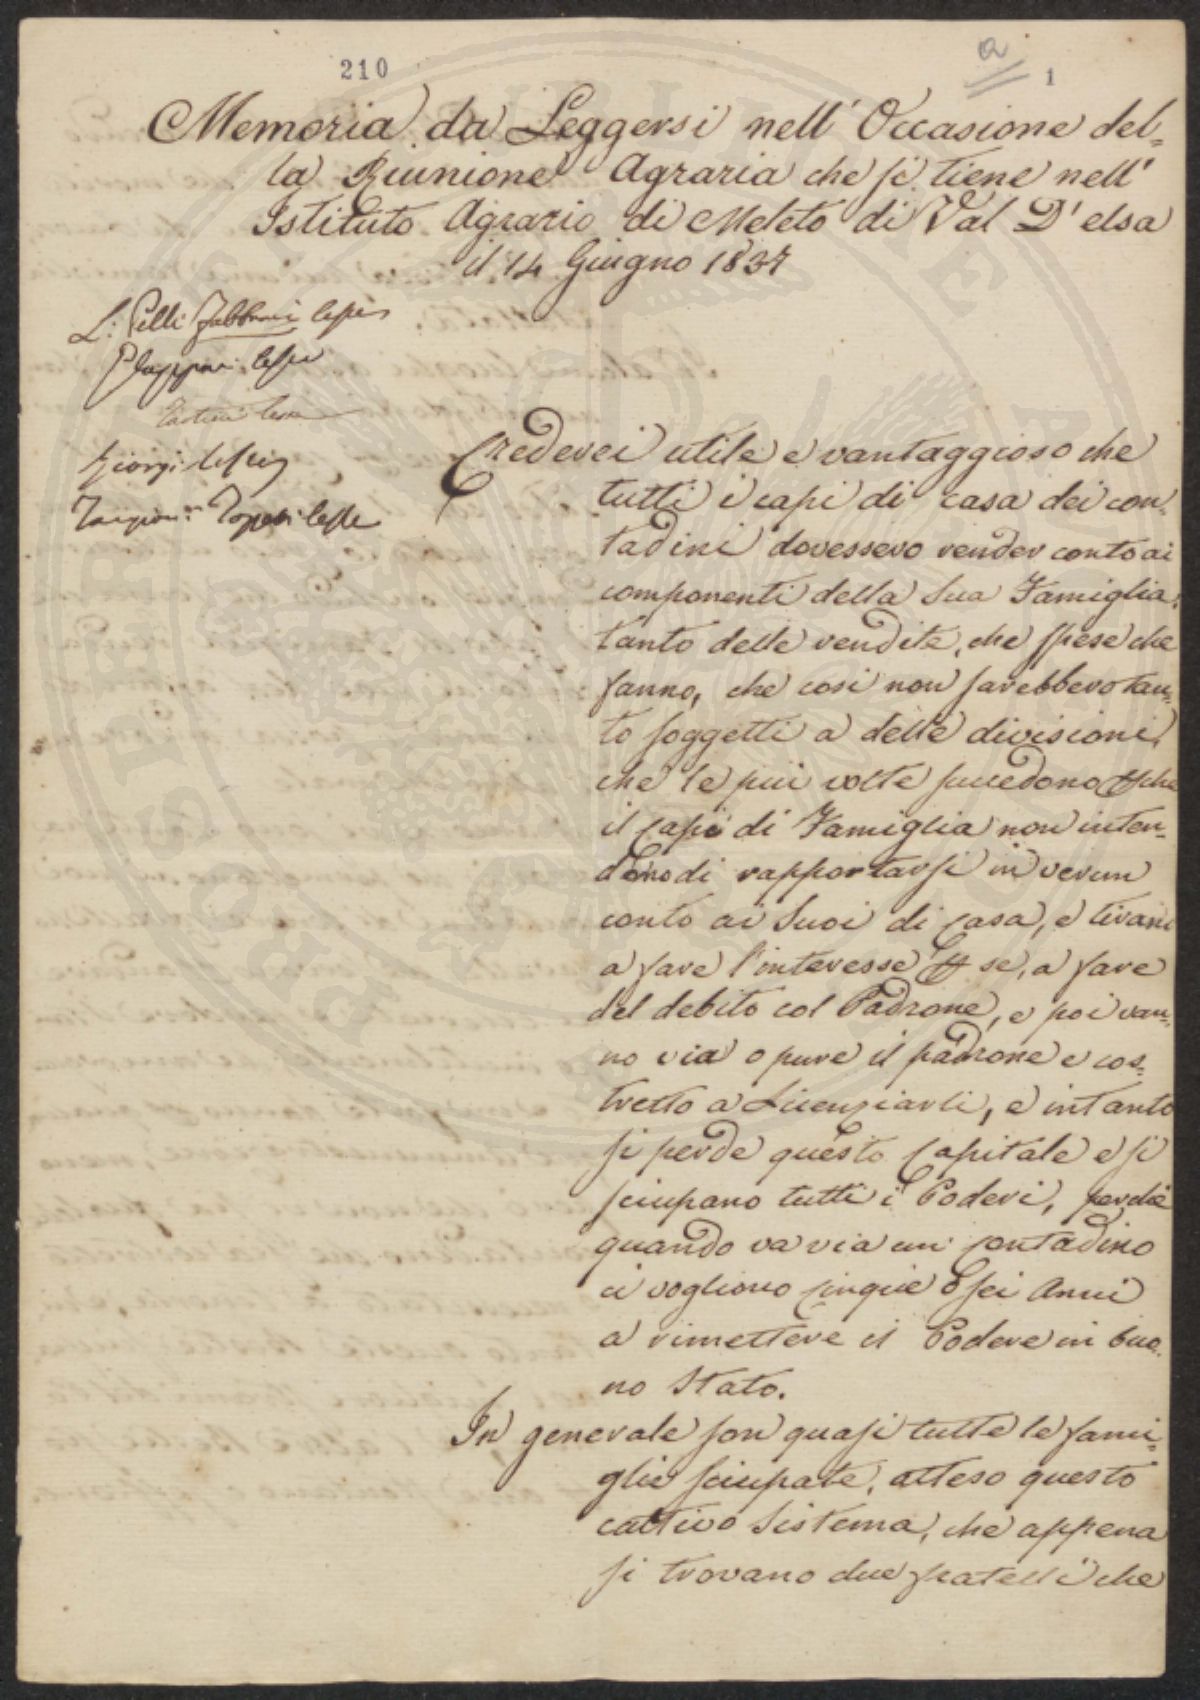 210
a
1
Memoria da Leggersi nell' Occasione del-
la Riunione Agraria che si tiene nell'
Istituto Agrario di Meleto di Val D'elsa
il 14 Giugno 1837
L: Pelli Fabbroni lesse
lesse
lesse
Giorgi lesse
lesse
Crederei utile e vantaggioso che
tutti i capi di casa dei con-
tadini dovessero render conto ai
componenti della Sua Famiglia,
tanto delle vendite, che spese che
fanno, che cosi non sarebbero tan-
to soggetti a delle divisioni,
che le piu volte succedono che
il Capi di Famiglia non inten-
dono di rapportarsi in verun
conto ai Suoi di Casa, e tirano
a fare l'interesse se, a fare
del debito col Padrone, e poi van-
no via o pure il padrone e cos-
tretto a Licenziarli, e intanto
si perde questo Capitale e si
sciupano tutti i Poderi, perche
quando va via un Contadino
ci vogliono Cinque o sei Anni
a rimettere il Podere in buo-
no Stato.
In generale son quasi tutte le fami-
glie sciupate, atteso questo
cattivo Sistema, che appena
si trovano due fratelli che
PROSPERITAS PUBLICAE